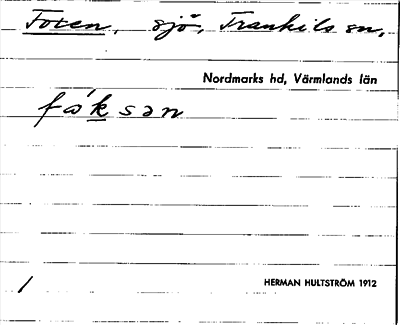 Foxen, sjö, Trankils sn,
Nordmarks hd, Värmlands län
fáksan
/
HERMAN HULTSTRÖM 1912